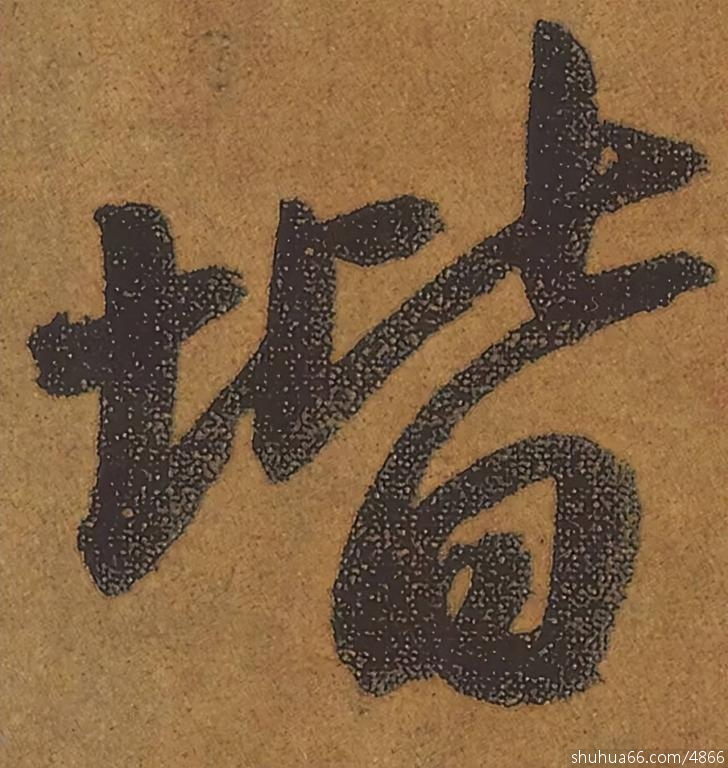 堦
shuhua66.com/4866